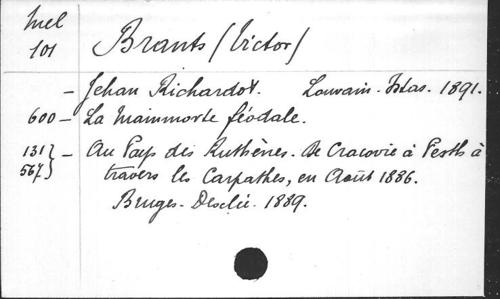 Mel
101 Brants (Victor)
- Jehan Richardot. Louvain - Istas. 1891.
600 - La Mainmorte féodale.
131 } - Au Pays des Ruthènes. De Cracovie à Pesth à
567 } travers les Carpathes, en Août 1886.
Bruges - Desclée. 1889.